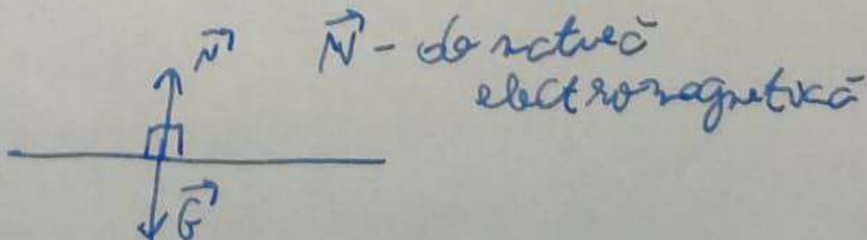 N⃗   N⃗ - de natură
electromagnetică
G⃗